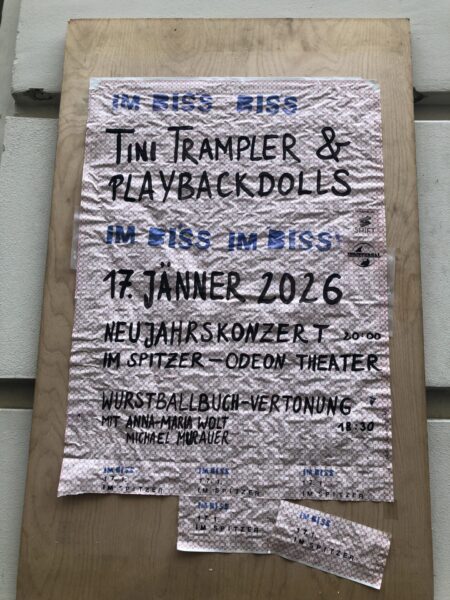 IM BISS BISS
TINI TRAMPLER &
PLAYBACKDOLLS
SHIFT
IM BISS IM BISS
17. JÄNNER 2026
NEUJAHRSKONZERT 20:00
IM SPITZER – ODEON THEATER
WURSTBALLBUCH-VERTONUNG
MIT ANNA-MARIA WOLT 18:30
MICHAEL MURAUER
IM BISS IM BISS IM BISS
17.1. 17.1. 17.1.
IM SPITZER IM SPITZER IM SPITZER
IM BISS IM BISS
17.1. 17.1.
IM SPITZER IM SPITZER